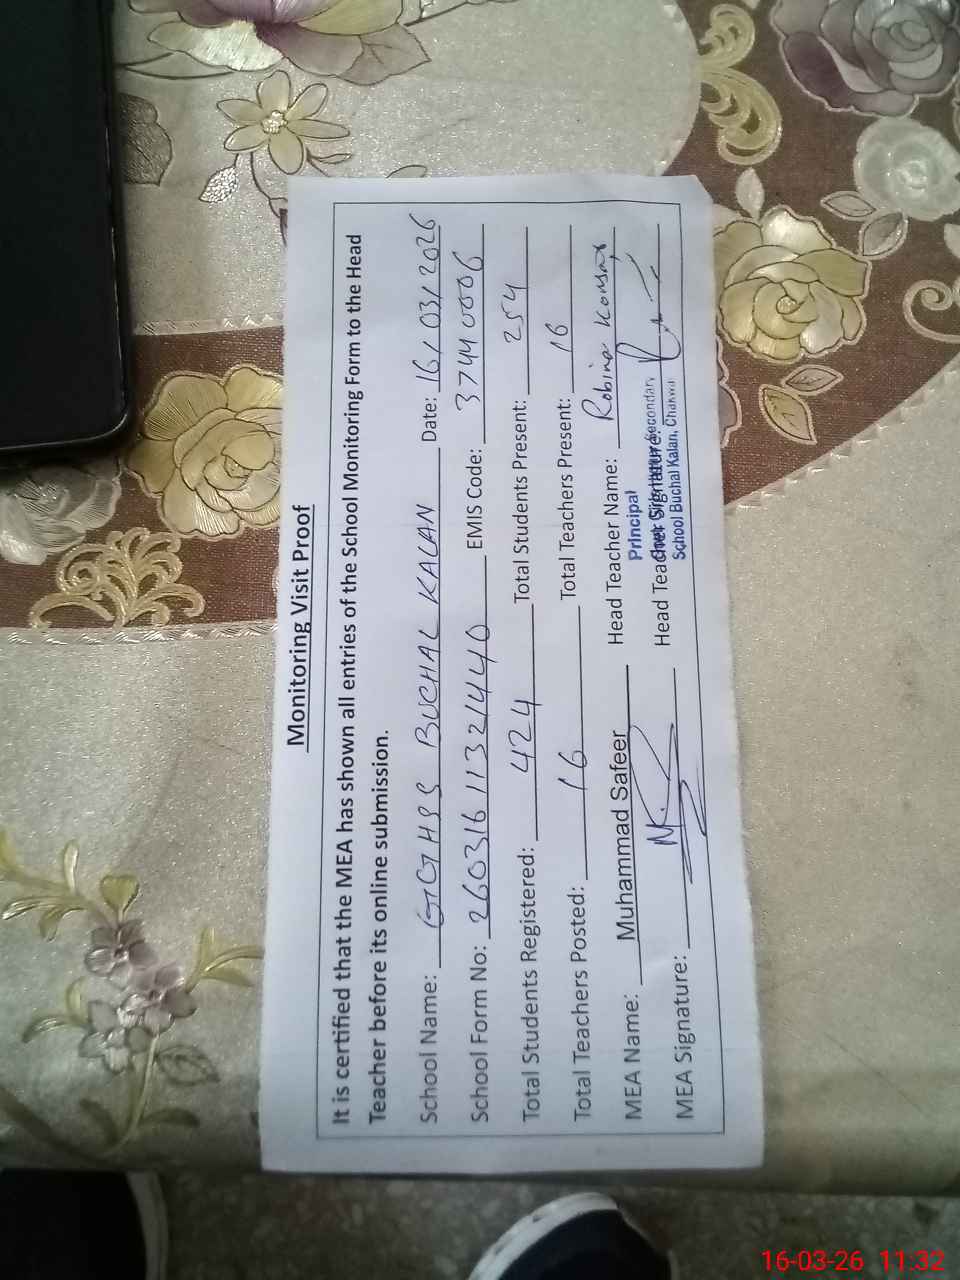 Monitoring Visit Proof
It is certified that the MEA has shown all entries of the School Monitoring Form to the Head
Teacher before its online submission.
School Name: GGHSS BUCHAL KALAN Date: 16/03/2026
School Form No: 260316113214440 EMIS Code: 37440006
Total Students Registered: 424 Total Students Present: 254
Total Teachers Posted: 16 Total Teachers Present: 16
MEA Name: Muhammad Safeer Head Teacher Name: Robina Kousar
Principal
MEA Signature: Head Teacher Signature:
Secondary
School Buchal Kalan, Chakwal
16-03-26 11:32